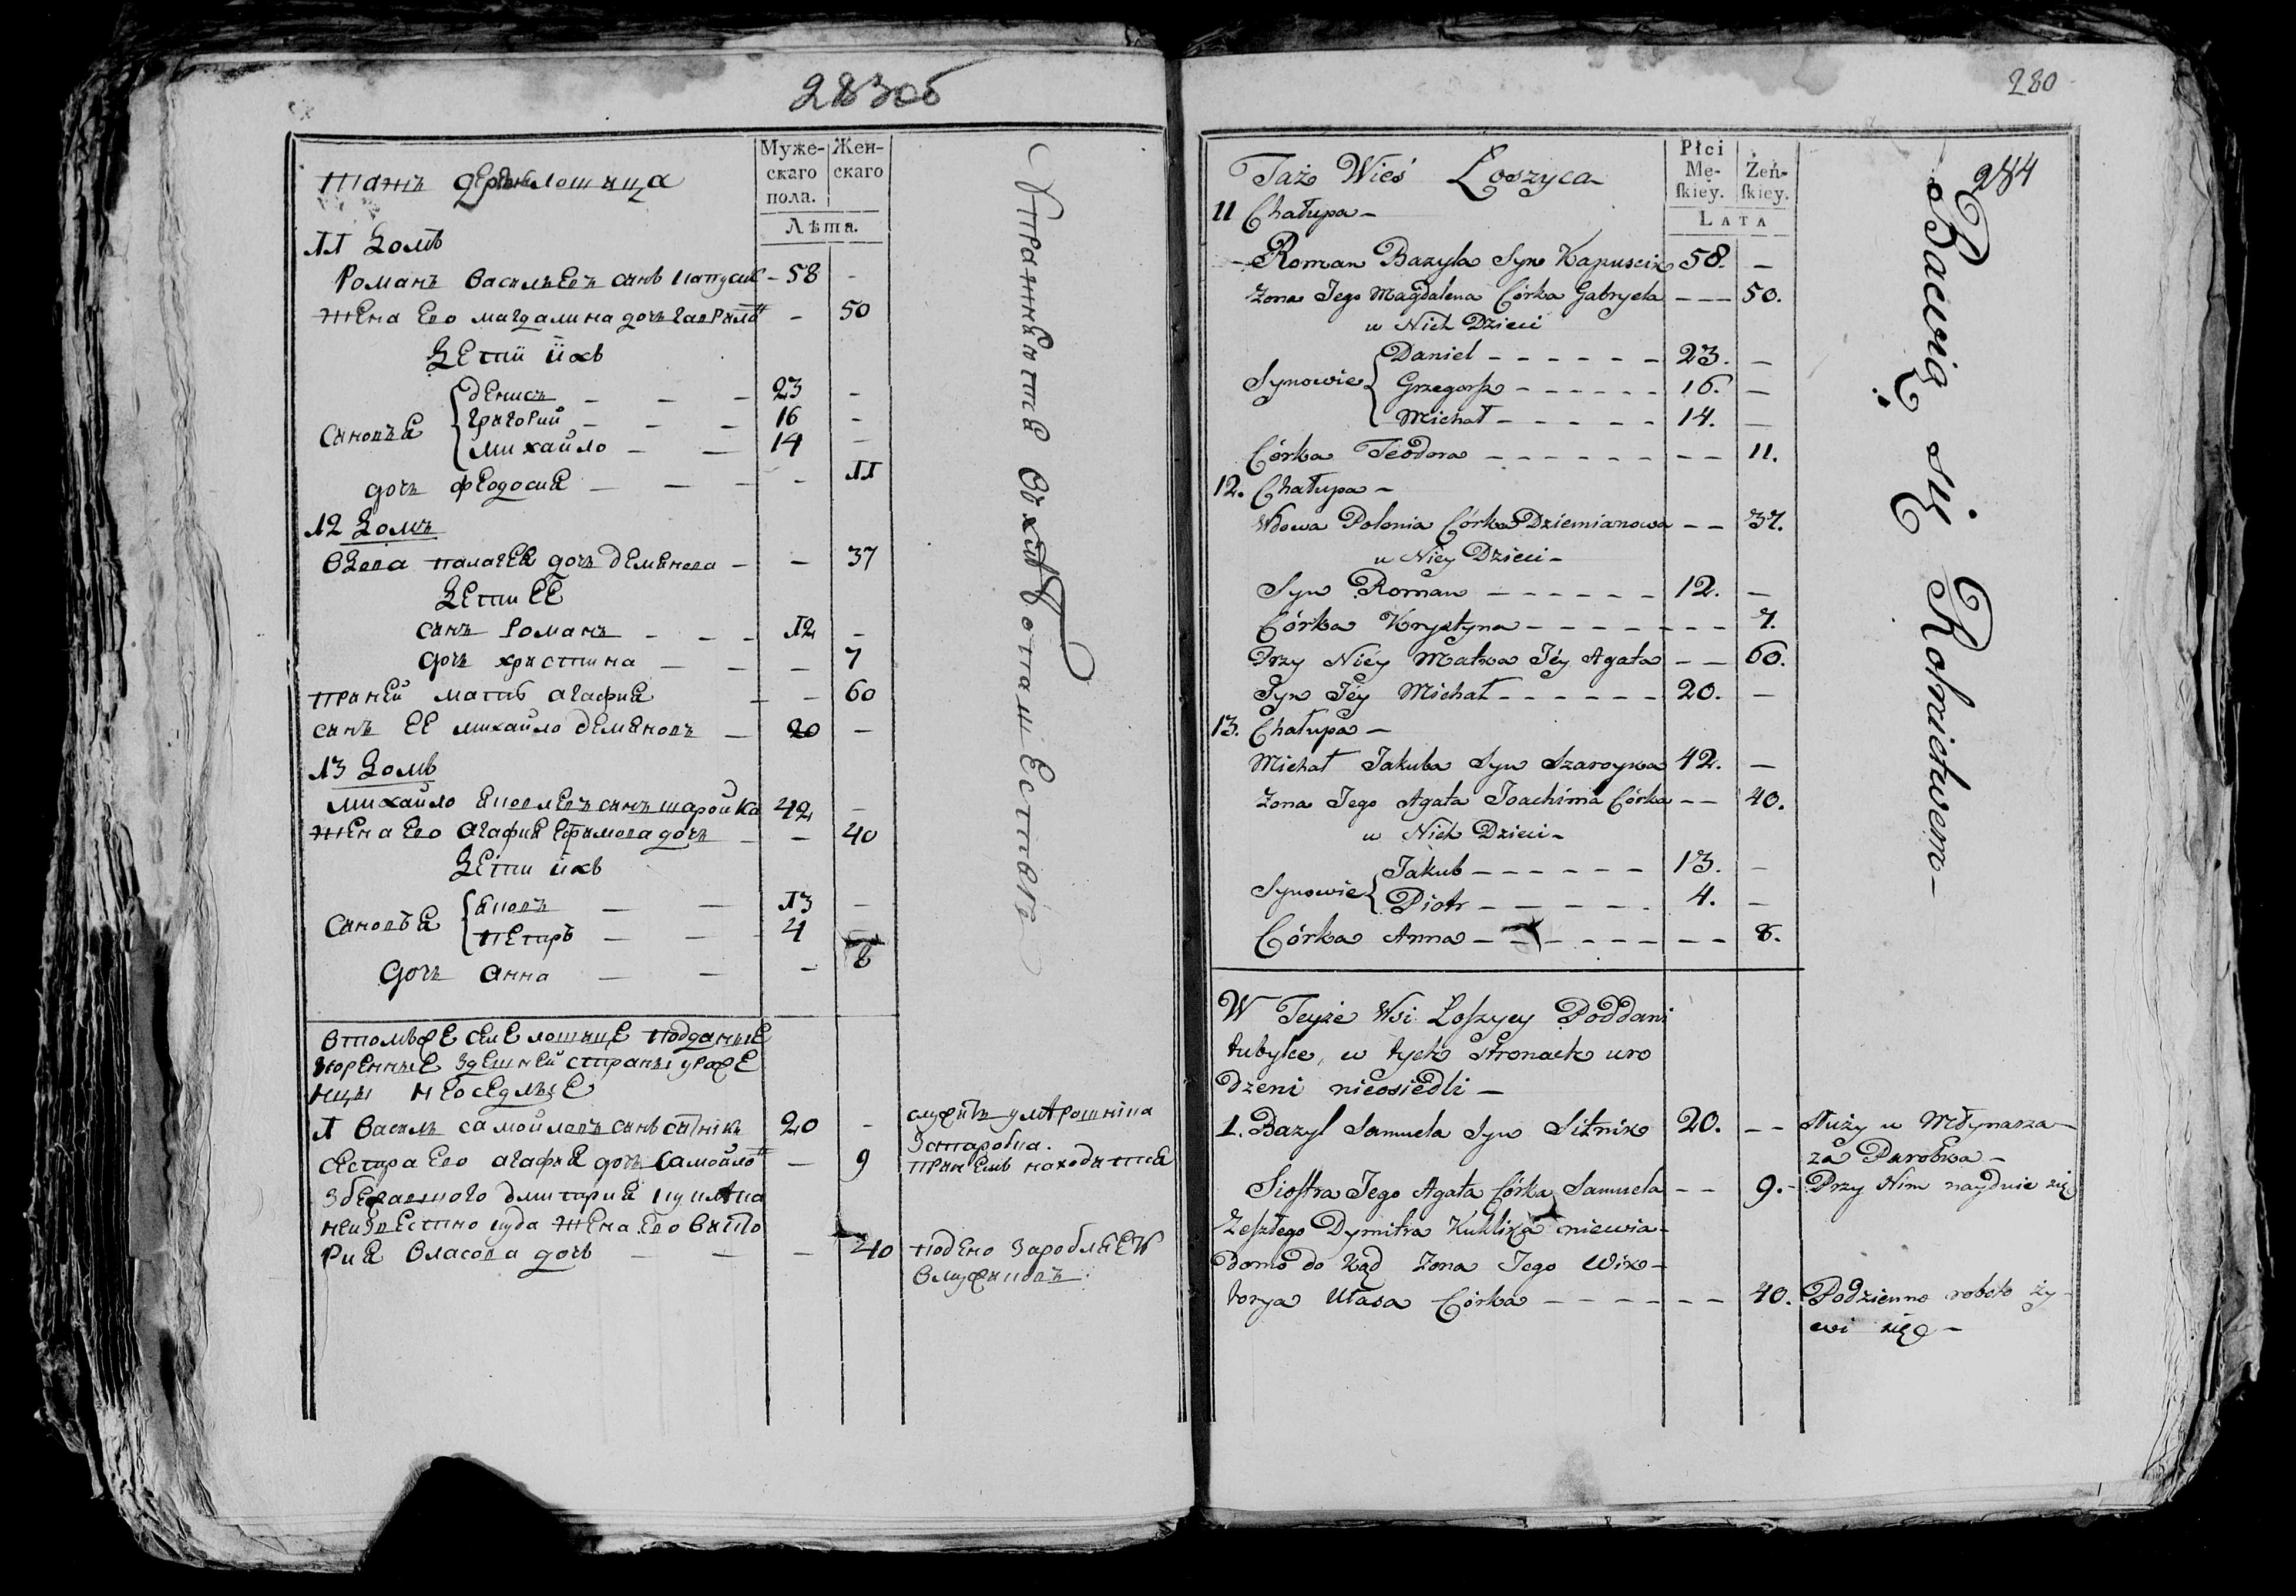 283об
Муже-
скаго
пола.
Жен-
скаго
Лѣта.
11 Домъ
Романъ Васильевъ синъ Капусик - 58 -
Жена Его магдалина дочь гаврилов - 50
Дети ихъ
Синовья
Денисъ - - - 23 -
григорий - - - 16 -
михайло - - 14 -
дочъ феодосия - - - - 11
12 Домъ
вдова палагея дочъ демянова - - 37
Дети ЕЕ
синъ Романъ - - - 12 -
дочъ христина - - - 7
при ней мать агафия - - 60
синъ ЕЕ михайло демяновъ - 20 -
13 Домъ
михайло яковлевъ синъ шаройка 42 -
жена Его агафия Ефимова дочъ - - 40
Дети ихъ
Синовья
яковъ - - 13 -
петръ - - - 4 -
дочъ анна - - - 8
втомъже селе лошице подданние
здешней страны уроже
нцы неоседлые
1 Василъ самойловъ синъ ситникъ 20 -
сестра Его агафия дочъ самойлов - 9
дмитрия
неизвестно куда жена Его викто
рия власова дочъ - - - 40
находится
280
284
Taż Wieś Łoszyca
Płci
Mę-
skiey.
Żeń-
skiey.
LATA
11 Chałupa -
Roman Bazyla Syn Kapuscik 58. -
Zona Jego Magdalena Córka Gabryela - - - 50.
u Nich Dzieci
Synowie
Daniel - - - - - - 23. -
Grzegorz - - - - - - 16. -
Michał - - - - - 14. -
Córka Teodora - - - - - - - - - 11.
12. Chałupa -
Wdowa Polonia Córka Dziemianowa - - 37.
u Niey Dzieci -
Syn Roman - - - - - - 12. -
Córka Krystyna - - - - - - - - 7.
Przy Niéy Matka Jéy Agata - - 60.
Syn Jéy Michał - - - - - - 20. -
13. Chałupa -
Michał Jakuba Syn Szaroyka 42. -
Zona Jego Agata Joachima Córka - - 40.
u Nich Dzieci -
Synowie
Jakub - - - - - - 13. -
Piotr - - - - - - 4. -
Córka Anna - - - - - - - - - 8.
W Teyże Wsi Łoszycy Poddani
tubylce, w tych stronach uro
dzeni nieosiedli -
1. Bazyl Samuela Syn Sitnik 20. - - służy u Młynarza
za Parobka -
Siostra Jego Agata Córka Samuela - - 9. - Przy Nim nayduie się
Zeszłego Dymitra Kuklika niewia-
domo do kąd Zona Jego Wik-
torya Ułasa Córka - - - - - - - 40. Podzienno roboto ży-
wi się -
Bawią się Rolnictwem -